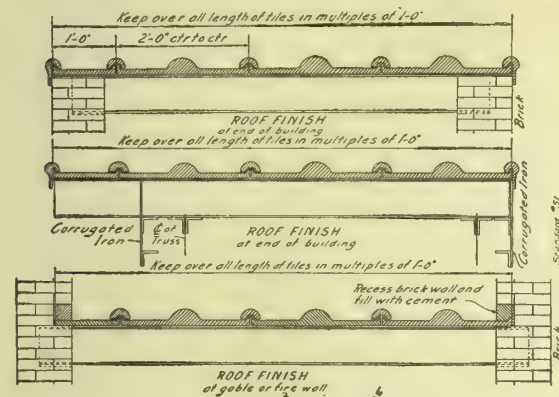 Keep over all length of tiles in multiples of 1'-0"
1'-0" 2'-0" ctr to ctr
ROOF FINISH
at end of building
Brick
Keep over all length of tiles in multiples of 1'-0"
Corrugated
Iron
℄ of
Truss
ROOF FINISH
at end of building
Corrugated Iron
Standard
Keep over all length of tiles in multiples of 1'-0"
Recess brick wall and
fill with cement
Brick
ROOF FINISH
at gable or fire wall